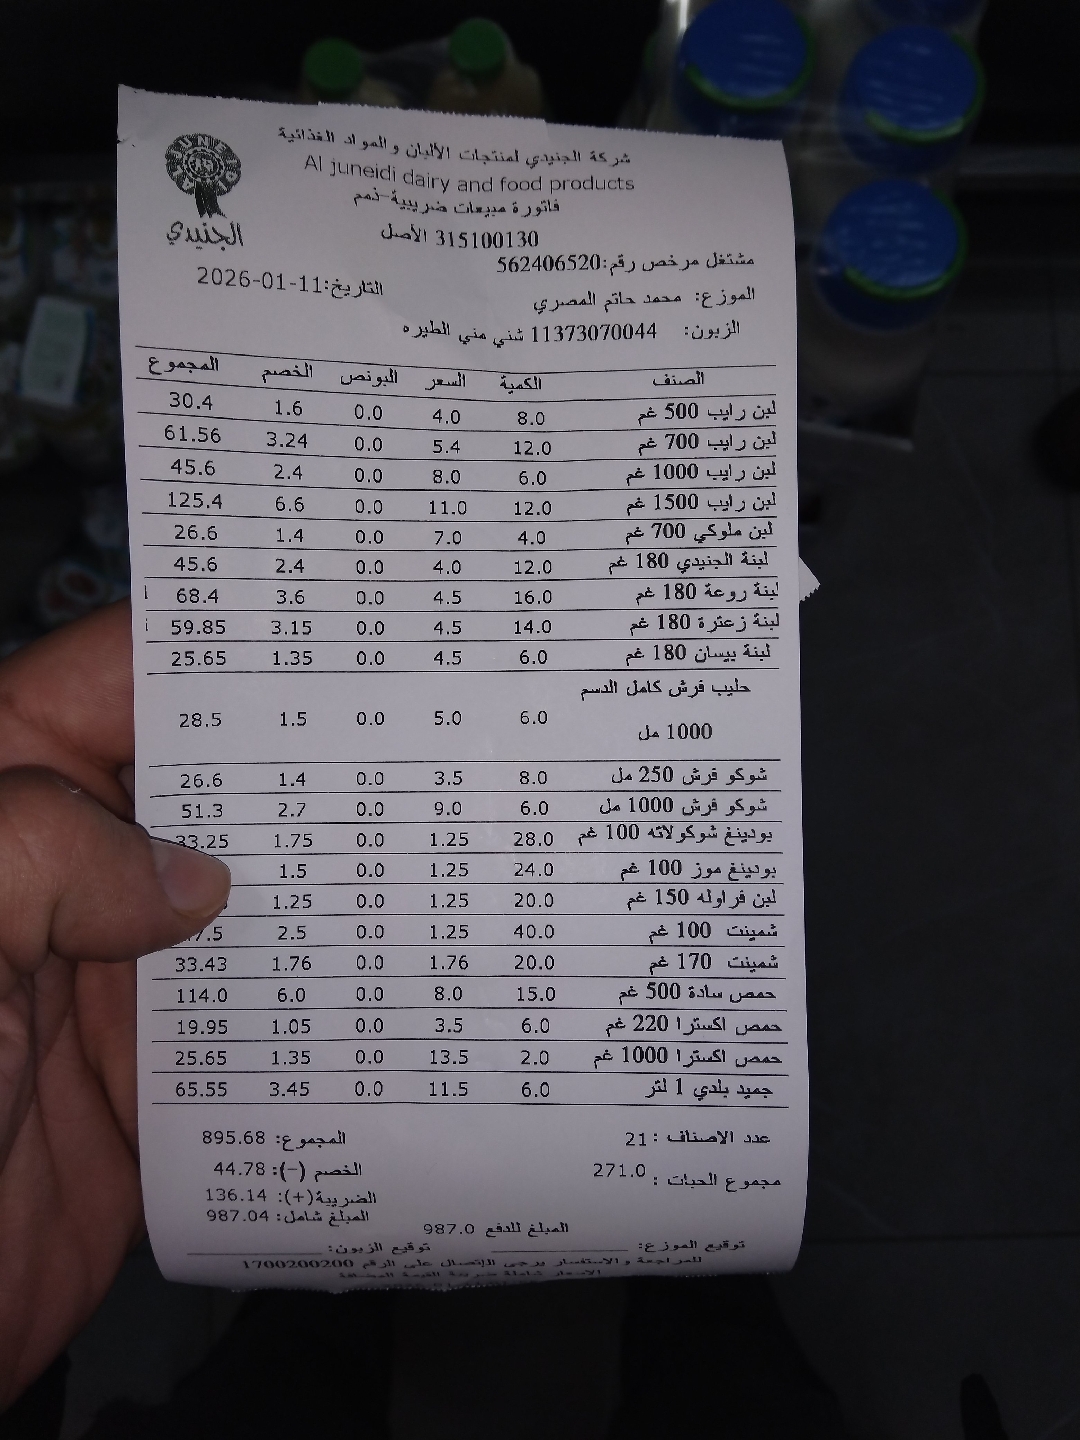 شركة الجنيدي لمنتجات الألبان والمواد الغذائية
Al juneidi dairy and food products
فاتورة مبيعات ضريبية-ذمم
315100130 الأصل
الجنيدي
مشتغل مرخص رقم:562406520
التاريخ:11-01-2026
الموزع: محمد حاتم المصري
الزبون: 11373070044 شني مني الطيره
الصنف الكمية السعر البونص الخصم المجموع
لبن رايب 500 غم 8.0 4.0 0.0 1.6 30.4
لبن رايب 700 غم 12.0 5.4 0.0 3.24 61.56
لبن رايب 1000 غم 6.0 8.0 0.0 2.4 45.6
لبن رايب 1500 غم 12.0 11.0 0.0 6.6 125.4
لبن ملوكي 700 غم 4.0 7.0 0.0 1.4 26.6
لبنة الجنيدي 180 غم 12.0 4.0 0.0 2.4 45.6
لبنة روعة 180 غم 16.0 4.5 0.0 3.6 68.4
لبنة زعترة 180 غم 14.0 4.5 0.0 3.15 59.85
لبنة بيسان 180 غم 6.0 4.5 0.0 1.35 25.65
حليب فرش كامل الدسم
1000 مل 6.0 5.0 0.0 1.5 28.5
شوكو فرش 250 مل 8.0 3.5 0.0 1.4 26.6
شوكو فرش 1000 مل 6.0 9.0 0.0 2.7 51.3
بودينغ شوكولاته 100 غم 28.0 1.25 0.0 1.75 33.25
بودينغ موز 100 غم 24.0 1.25 0.0 1.5
لبن فراوله 150 غم 20.0 1.25 0.0 1.25
شمينت 100 غم 40.0 1.25 0.0 2.5 7.5
شمينت 170 غم 20.0 1.76 0.0 1.76 33.43
حمص سادة 500 غم 15.0 8.0 0.0 6.0 114.0
حمص اكسترا 220 غم 6.0 3.5 0.0 1.05 19.95
حمص اكسترا 1000 غم 2.0 13.5 0.0 1.35 25.65
جميد بلدي 1 لتر 6.0 11.5 0.0 3.45 65.55
عدد الاصناف : 21 المجموع: 895.68
مجموع الحبات : 271.0 الخصم (-): 44.78
الضريبة(+): 136.14
المبلغ شامل: 987.04
المبلغ للدفع 987.0
توقيع الموزع: توقيع الزبون:
للمراجعة والاستفسار يرجى الإتصال على الرقم 1700200200
الاسعار شاملة ضريبة القيمة المضافة